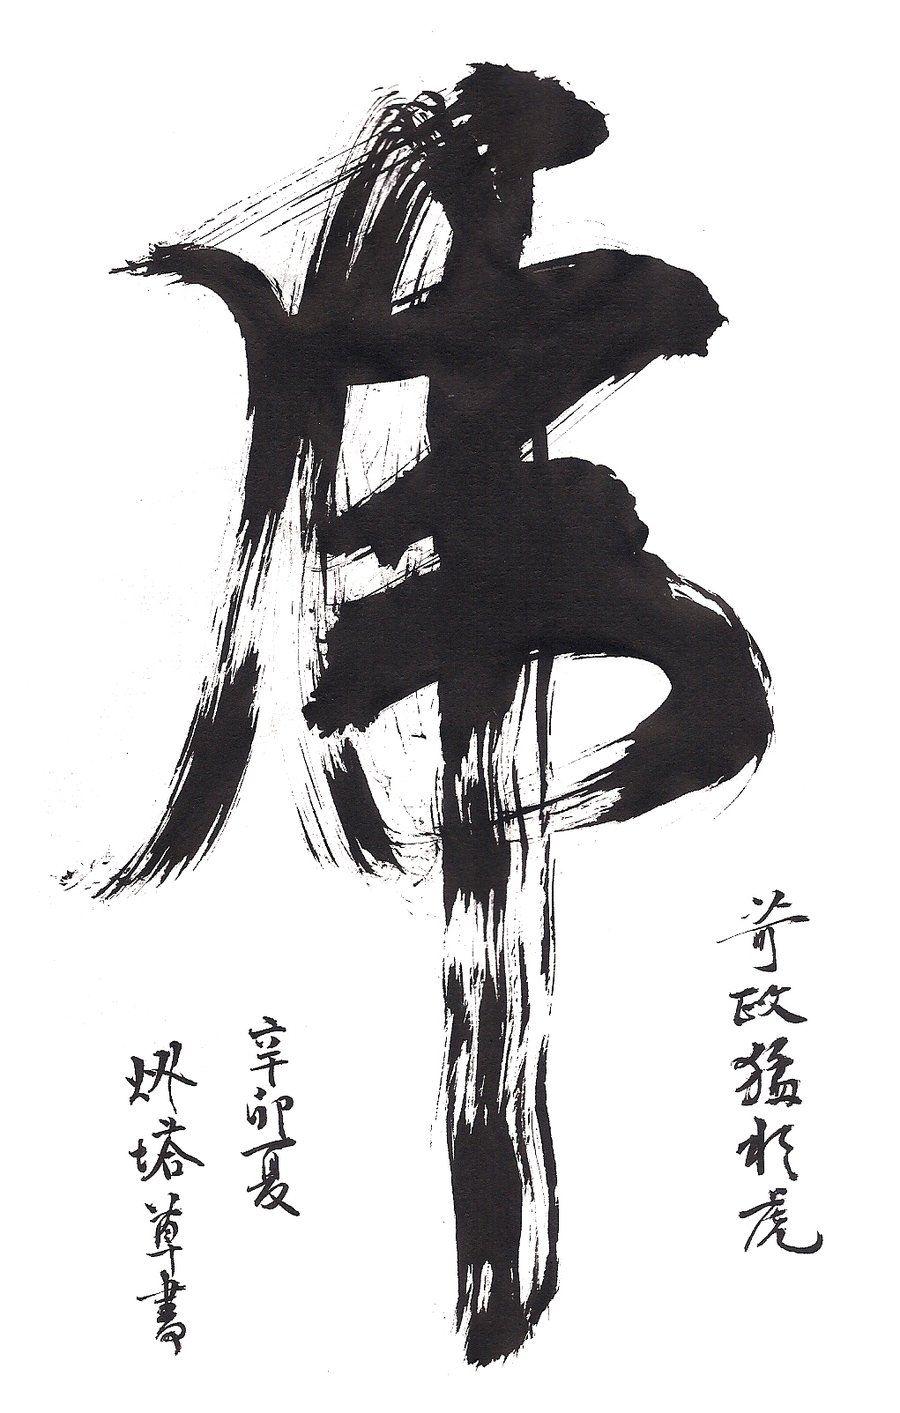 虎
苛政猛於虎
辛卯夏
塔草書